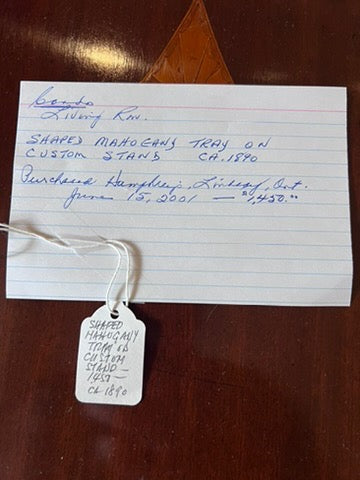 Condo
Living Rm.
SHAPED MAHOGANY TRAY ON
CUSTOM STAND CA. 1890
Purchased Humphries, Lindsay, Ont.
June 15, 2001 — $1,450.00
SHAPED
MAHOGANY
TRAY ON
CUSTOM
STAND —
1450 —
CA 1890